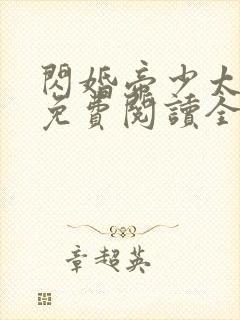 閃婚帝少太
免費閱讀全
章超英